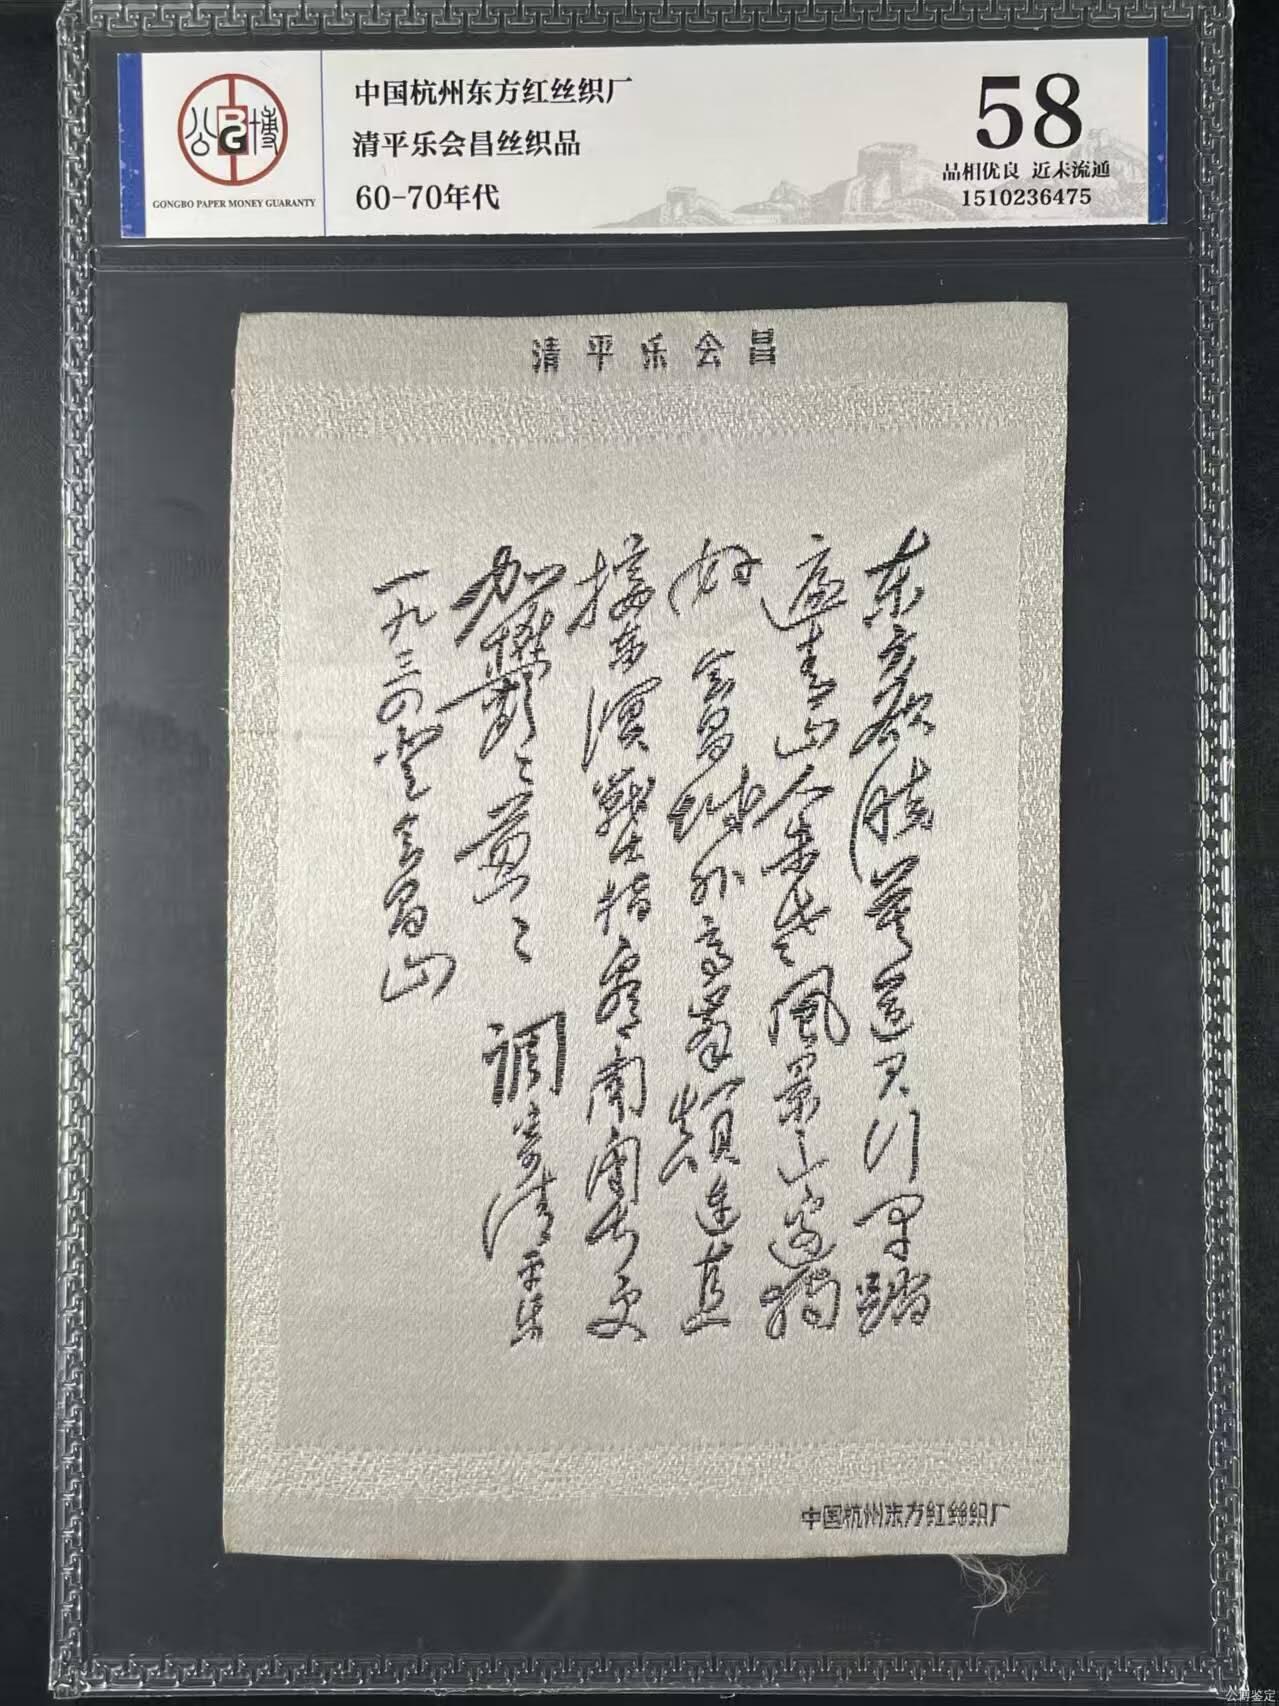 公博
BG
GONGBO PAPER MONEY GUARANTY
中国杭州东方红丝织厂
清平乐会昌丝织品
60-70年代
58
品相优良 近未流通
1510236475
清平乐会昌
东方欲晓莫道君行早踏
遍青山人未老風景这边獨
好 会昌城外高峯颠连直
接东溟戰士指看南粤更
加鬱々葱々 调寄清平乐
一九三四登会昌山
中国杭州东方红丝织厂
公博鉴定